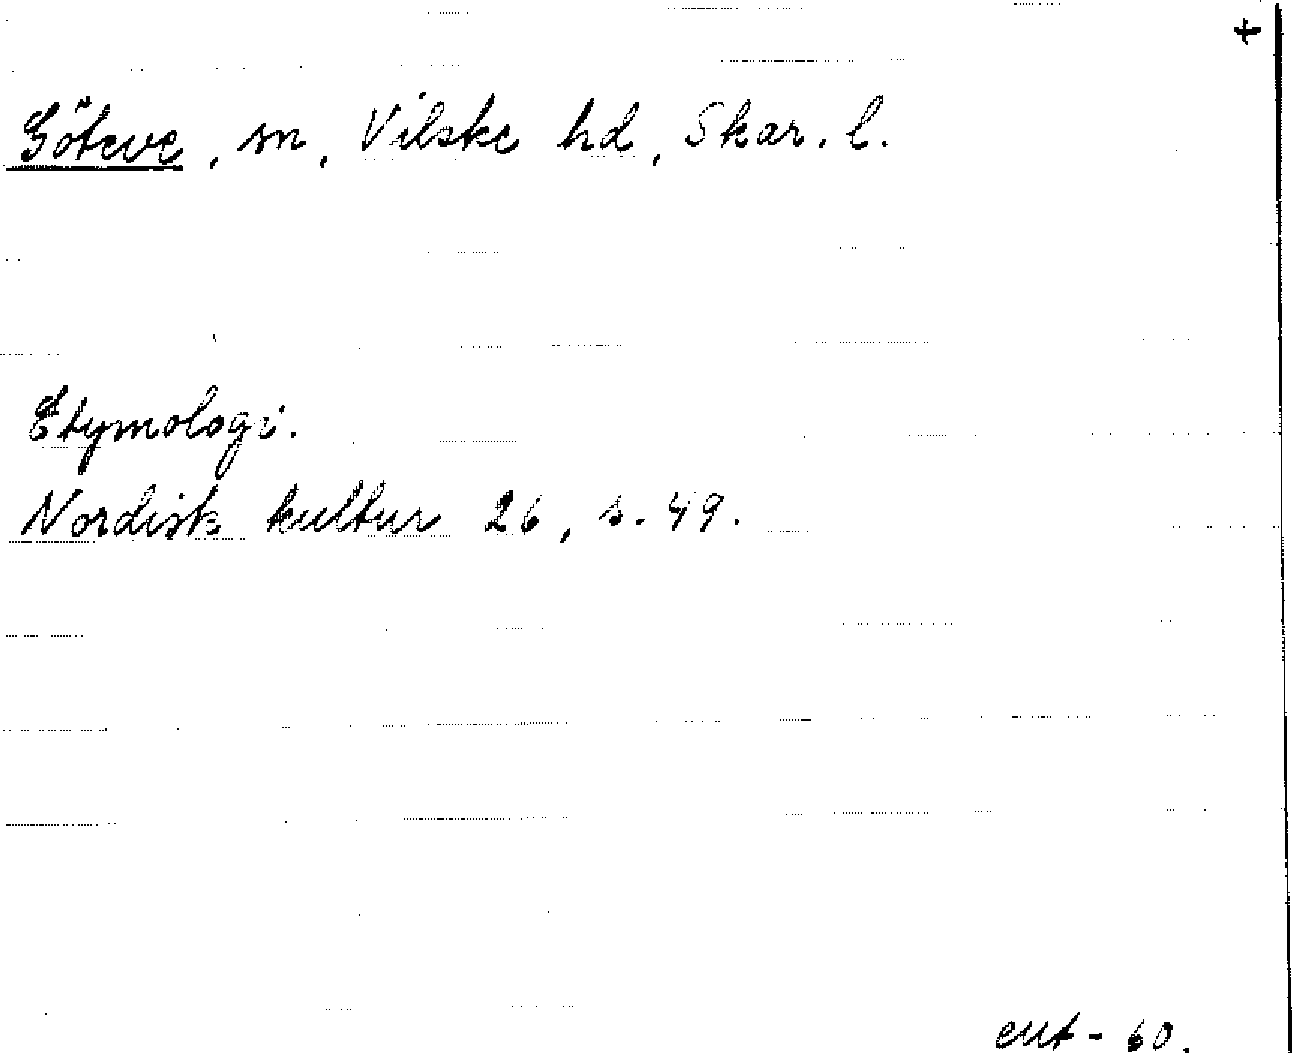 +
Göteve, sn, Vilske hd, Skar. l.
Etymologi.
Nordisk kultur 26, s. 49.
-60.